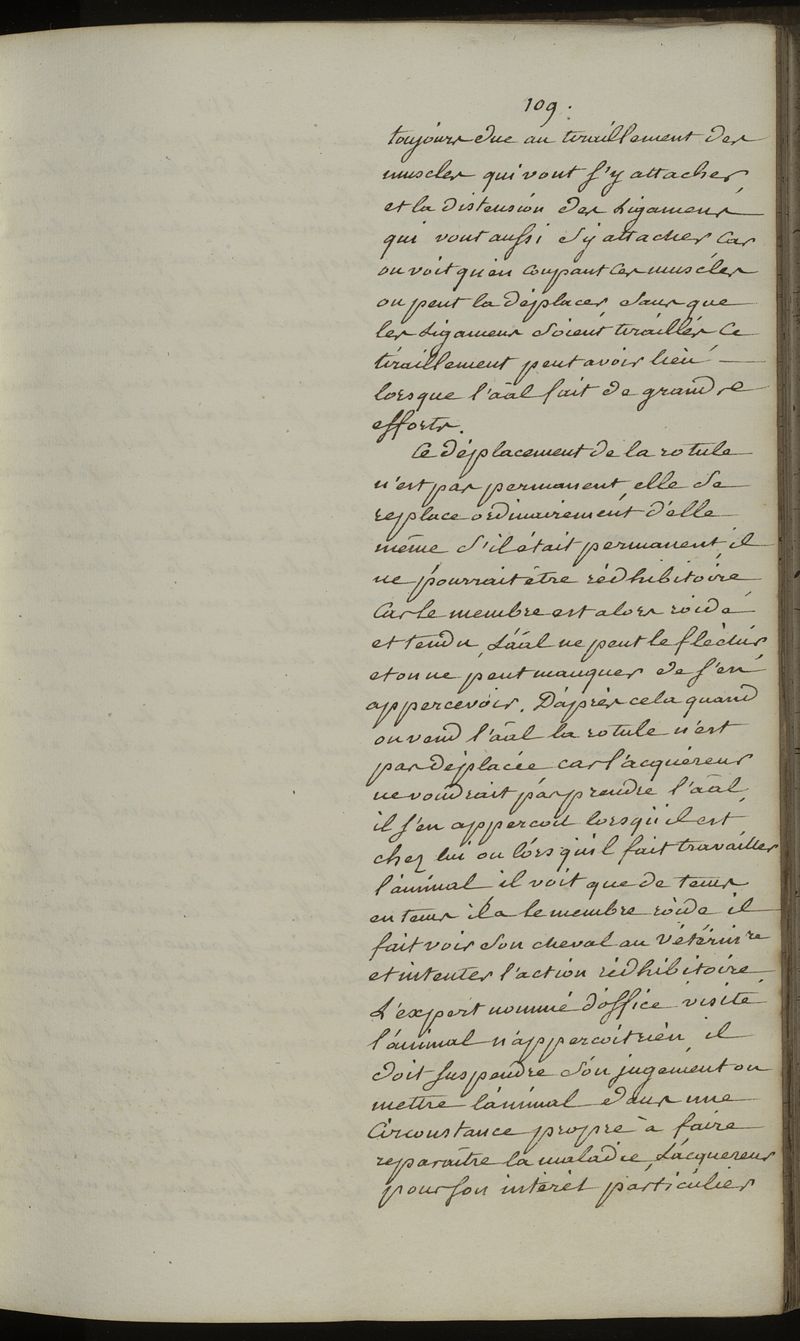 109.
toujours due au tiraillement des
muscles qui vont s'y attacher
et la distension des Ligamens
qui vont aussi s'y attacher Car
on voit qu'en coupant ces muscles
on peut la déplacer sans que
les Ligamens soient tiraillés Ce
tiraillement peut avoir lieu
lorsque l'aāl fait de grands
efforts.
Ce déplacement de la rotule
n'est pas permanent elle se
replace ordinairement d'elle
même s'il était permanent il
ne pourrait être rédhibitoire
Car le membre est alors roide
et tendu, L'aāl ne peut le fléchir
et on ne peut manquer de s'en
appercevoir. D'après cela quand
on vend l'aāl la rotule n'est
pas déplacée car l'acquéreur
ne voudrait pas prendre l'aāl
il s'en apperçoit lorsqu'il est
chez lui ou lorsqu'il fait travailler
l'animal il voit que de tems
en tems il a le membre roide il
fait voir son cheval au Vétérinre
et intenter l'action rédhibitoire
L'expert nommé d'office visite
l'animal n'apperçoit rien, il
doit suspendre son jugement ou
mettre l'animal dans une
Circonstance propre à faire
reparaître la maladie, L'acquereur
pour son intérêt particulier